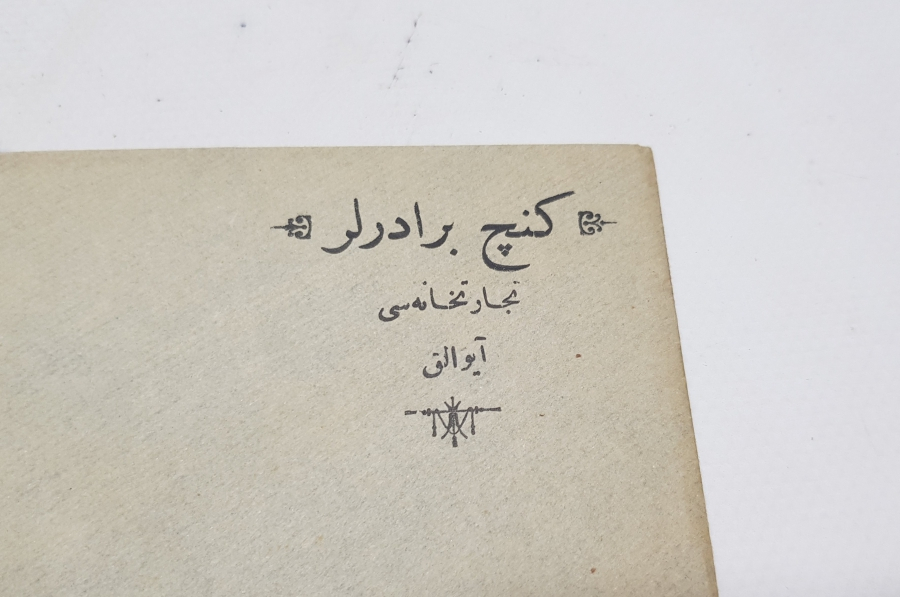 كنچ برادرلر
تجارتخانه‌سی
آیوالق